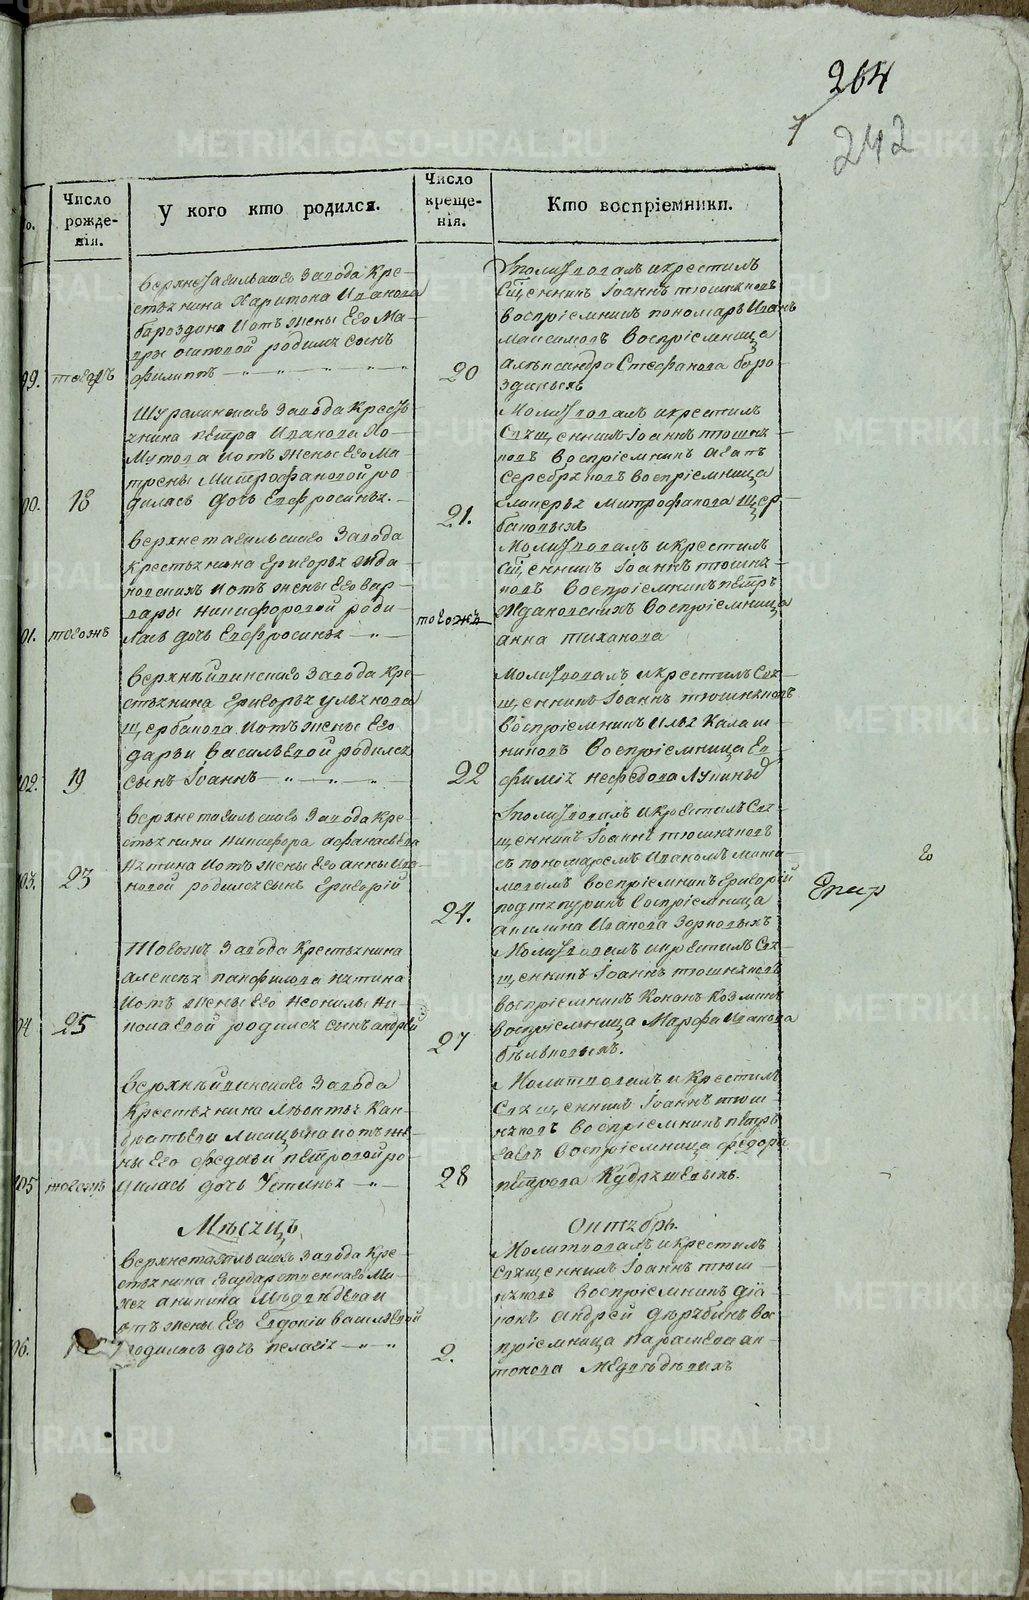 264
7
242
го.
Число рожде-нія.
У кого кто родился.
Число креще-нія.
Кто воспріемники.
99.
тогожъ
Верхнетагильскаго Завода Кре-
стьянина Харитона Иванова
бароздина и отъ жены Его Ма-
осиповой родилъ сынъ
филиппъ
20
Молитвовалъ и крестилъ
Свщенникъ Іоаннъ тюшняковъ
воспріемникъ пономарь Иванъ
Максимовъ Воспріемница
александра Стефанова боро-
здиныхъ
00.
18
Шуралинскаго Завода Кресть-
янина Петра Иванова Хо-
мутова и отъ жены Его Ма-
трены Митрофановой ро-
дилась дочь Евфросинья.
21.
Молитвовалъ и крестилъ
Священникъ Іоаннъ тюшня-
ковъ Воспріемникъ Агапъ
Серебряковъ Воспріемница
Гликерья Митрофанова Щер-
баковыхъ
01.
тогожъ
Верхнетагильскаго Завода
Крестьянина Григорья жда-
новскихъ и отъ жены Его вар-
вары никифоровой роди-
лась дочь Евфросинья
тогожъ
Молитвовалъ и крестилъ
Свщенникъ Іоаннъ тюшня-
ковъ Воспріемникъ петръ
Ждановскихъ Воспріемница
анна тиханова
02.
19
Верхнейвинскаго Завода Кре-
стьянина Григорья ульянова
Щербакова и отъ жены Его
дарьи Васильевой родился
сынъ Іоаннъ
22
Молитвовалъ и крестилъ Свя-
щенникъ Іоаннъ тюшняковъ
Воспріемникъ Илья Калаш-
никовъ Воспріемница Ев-
фимія Нефедова Лупиныхъ
03.
23
Верхнетагильскаго Завода Кре-
стьянина никифора афанасьева
Иятина и отъ жены Его анны Ива-
новой родился сынъ Григорій
24.
Молитвовалъ и крестилъ Свя-
щенникъ Іоаннъ тюшняковъ
съ пономаремъ Иваномъ
Воспріемникъ Григорій
подтяпуринъ Воспріемница
акилина Иванова Зорновыхъ
Егир
го
04
25
Тогожъ Завода Крестьянина
алексея панфилова Иятина
и отъ жены Его Неонилы Ни-
родился сынъ андрей
27
Молитвовалъ и крестилъ Свя-
щенникъ Іоаннъ тюшняковъ
воспріемникъ Кононъ Козминъ
Воспріемница Марфа Иванова
бѣльковыхъ.
105
тогожъ
Верхнейвинскаго Завода
Крестьянина Леонтья Кон-
дратьева Лисицына и отъ же-
ны Его федосьи петровой ро-
дилась дочь Устинья
28
Молитвовалъ и крестилъ
Священникъ Іоаннъ тюш-
няковъ Воспріемникъ петръ
Воспріемница федора
петрова Кудряшевыхъ.
Мѣсяцъ
Октябрь.
06.
1
Верхнетагильскаго Завода Кре-
стьянина Государственнаго Ми-
хея аникина Медведева и
отъ жены Его Евдокіи васильевой
родилась дочь пелагія
2.
Молитвовалъ и крестилъ
Священникъ Іоаннъ тюш-
няковъ Воспріемникъ дія-
конъ андрей дерябинъ Во-
спріемница параскева ан-
тонова Медведевыхъ